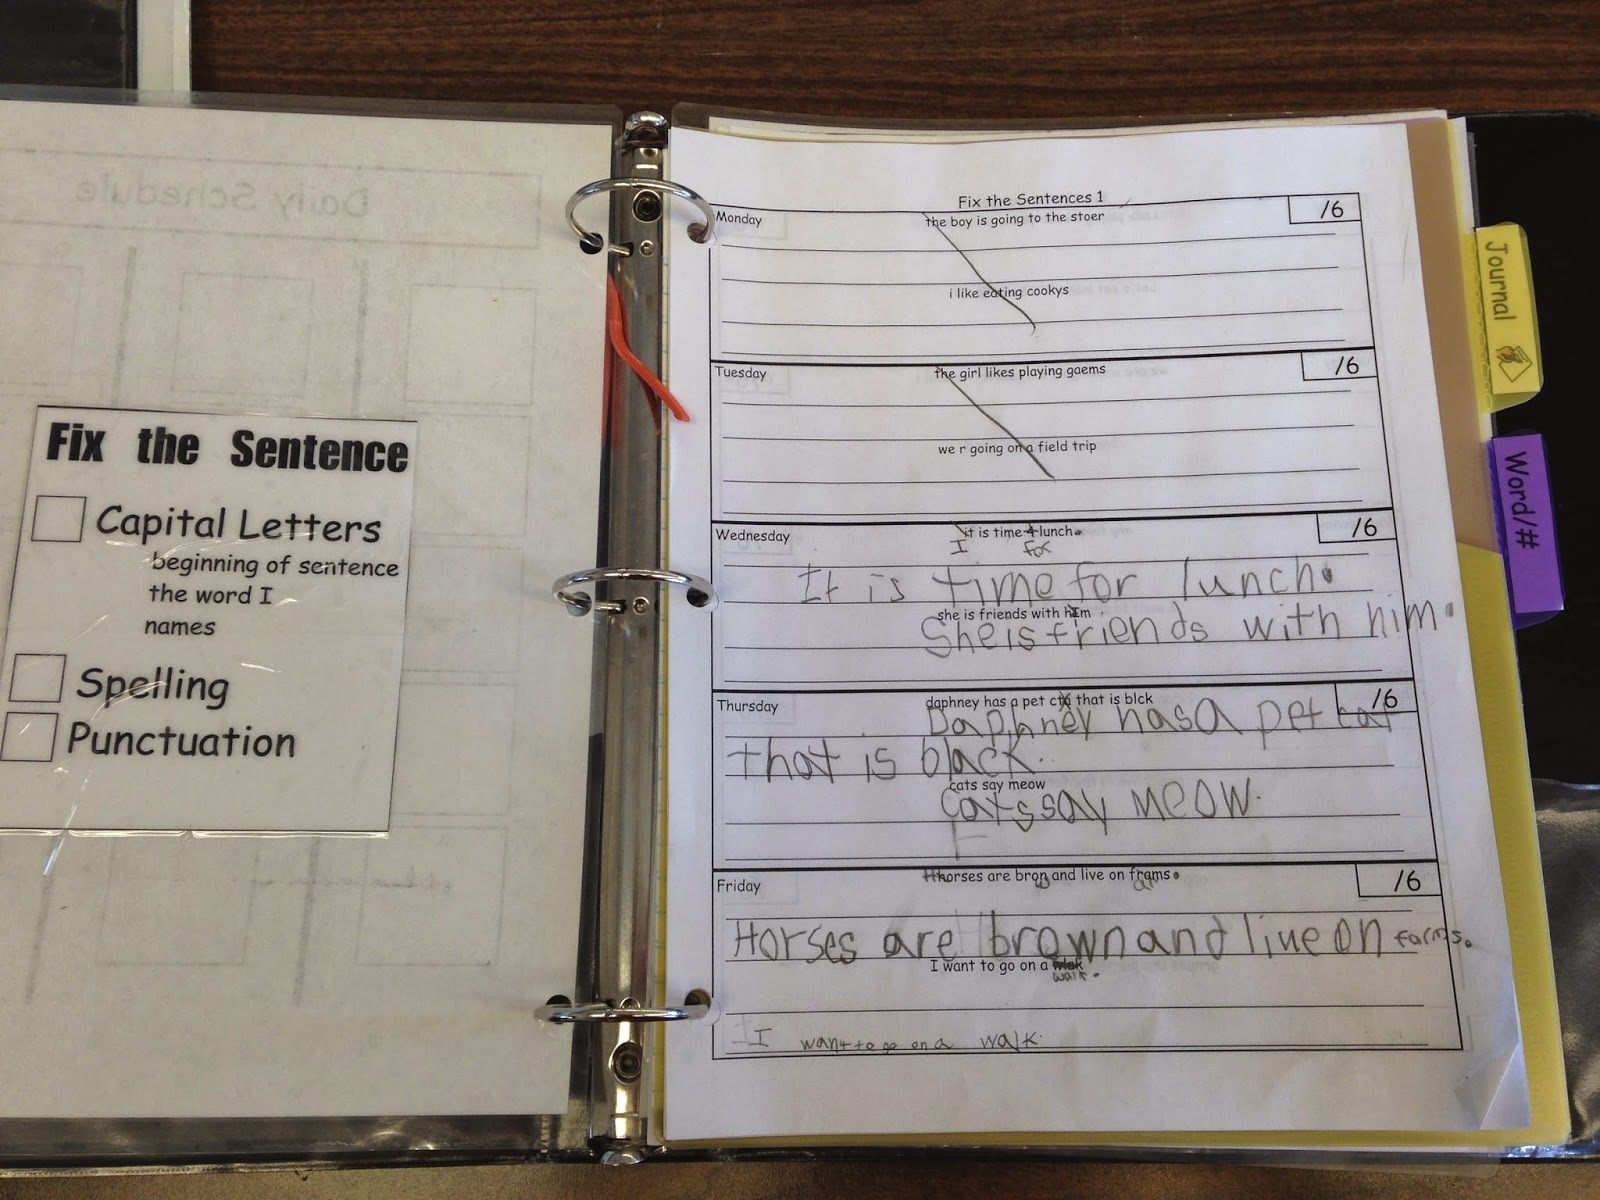 Daily Schedule
Fix the Sentence
Capital Letters
beginning of sentence
the word I
names
Spelling
Punctuation
Fix the Sentences 1
Monday
/6
the boy is going to the stoer
i like eating cookys
Tuesday
/6
the girl likes playing gaems
we r going on a field trip
Wednesday
/6
it is time 4 lunch.
I for
It is time for lunch.
she is friends with him.
She is friends with him.
Thursday
/6
daphney has a pet cta that is blck
Daphney has a pet cat
that is black.
cats say meow
Cats say meow.
Friday
/6
horses are bron and live on frams.
w ar
Horses are brown and live on farms.
I want to go on a wlak
walk.
I want to go on a walk.
Journal
Word/#